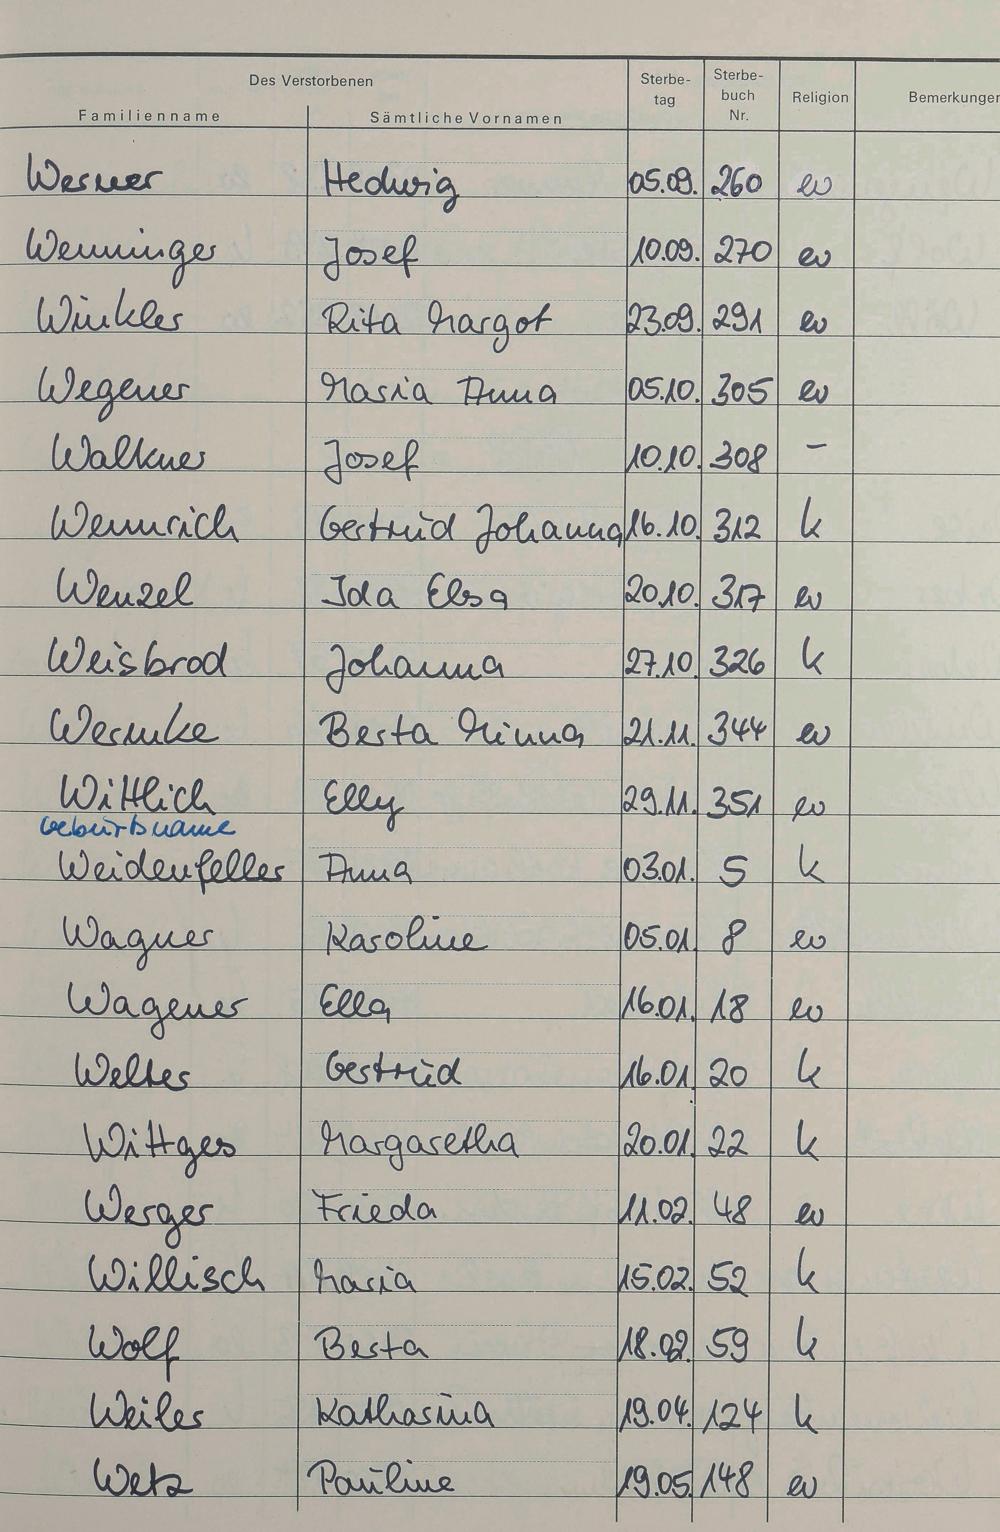 Des Verstorbenen
Familienname Sämtliche Vornamen Sterbe-tag Sterbe-buch Nr. Religion Bemerkungen
Werner Hedwig 05.09. 260 ev
Wenninger Josef 10.09. 270 ev
Winkler Rita Margot 23.09. 291 ev
Wegener Maria Anna 05.10. 305 ev
Walkner Josef 10.10. 308 –
Wennrich Gertrud Johanna 16.10. 312 k
Wenzel Ida Elsa 20.10. 317 ev
Weisbrod Johanna 27.10. 326 k
Wernke Berta Minna 21.11. 344 ev
Wittlich Elly 29.11. 351 ev
Geburtsname
Weidenfeller Anna 03.01. 5 k
Wagner Karoline 05.01. 8 ev
Wagener Ella 16.01. 18 ev
Welter Gertrud 16.01. 20 k
Wittges Margaretha 20.01. 22 k
Werger Frieda 11.02. 48 ev
Willisch Maria 15.02. 52 k
Wolf Berta 18.02. 59 k
Weiler Katharina 19.04. 124 k
Wetz Pauline 19.05. 148 ev